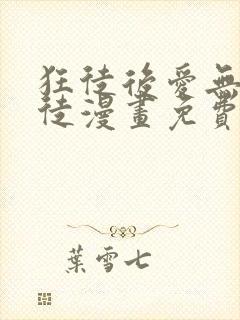 狂徒後愛無
徒漫畫免費
葉雪七